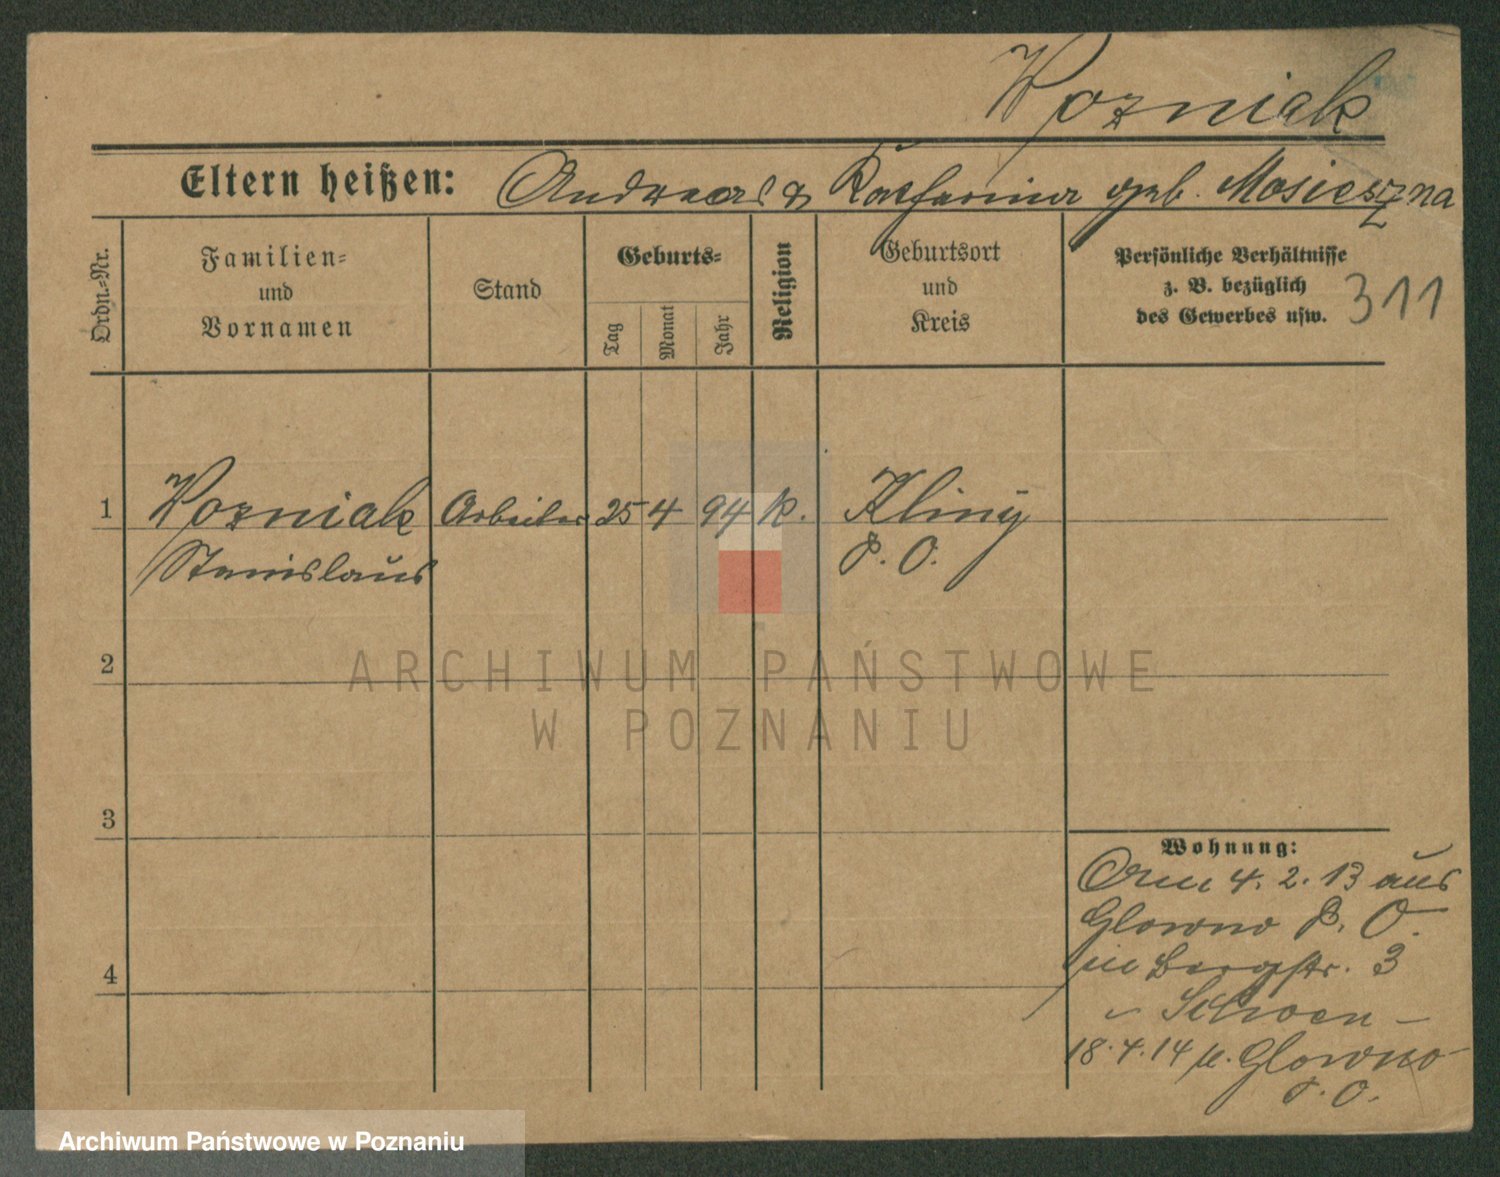 Wozniak
Eltern heißen: Andreas & Katharina geb. Mosieszna
Ordn.-Nr.
Familien-
und
Vornamen
Stand
Geburts-
Tag
Monat
Jahr
Religion
Geburtsort
und
Kreis
Persönliche Verhältnisse
z. B. bezüglich
des Gewerbes usw.
311
1 Wozniak Arbeiter 25 4 94 k. Kliny
Stanislaus P. O.
2
3
4
Wohnung:
Am 4. 2. 13 aus
Glowno P. O.
in Bergstr. 3
Schoen
18.4.14 n. Glowno
P. O.
ARCHIWUM PAŃSTWOWE
W POZNANIU
Archiwum Państwowe w Poznaniu